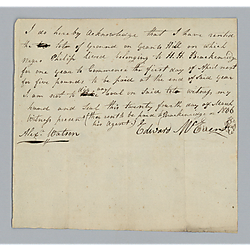 I do hereby Acknowledge that I have rented
the lots of Ground on Grants Hill on which
negro Philip lived belonging to H. H. Brackenridge
for one year to Commence the first day of April next
for five pounds to be paid at the end of said year
I am not to Soul on Said lots witness my
hand and Seal this twenty fourth day of March
Witness present (the rent to be paid to Brackenridge or 1806
his agent)
Alexr Watson Edward